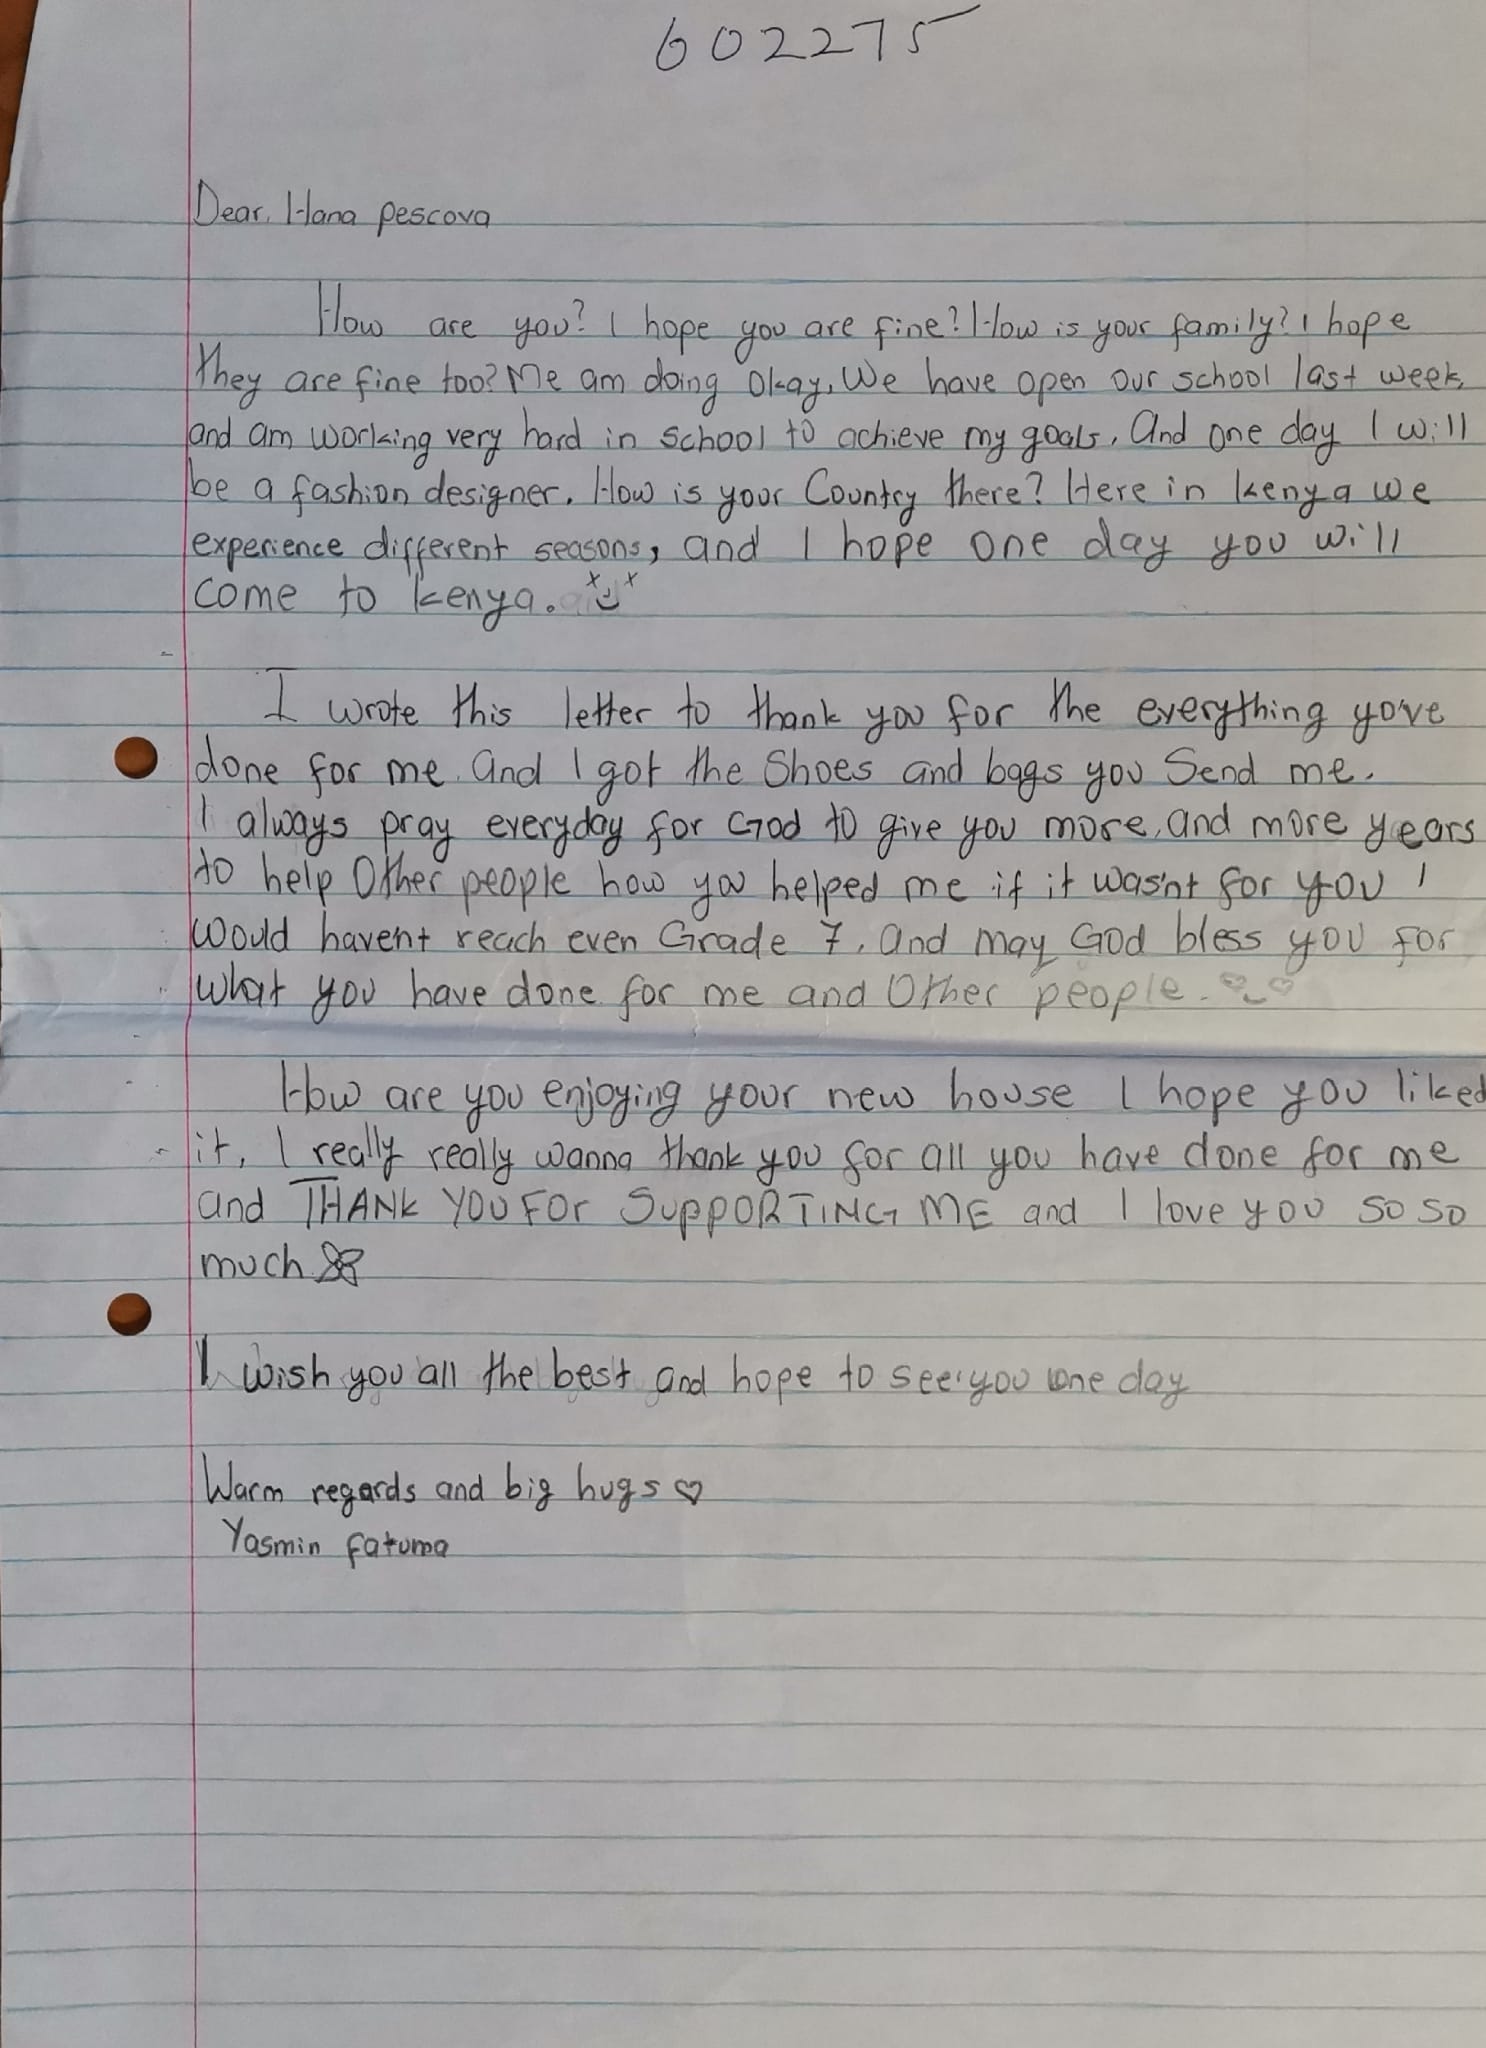 602275
Dear, Hana pescova
How are you? I hope you are fine? How is your family? I hope
they are fine too? Me am doing Okay, We have open our school last week,
and am working very hard in school to achieve my goals, And one day I will
be a fashion designer. How is your Country there? Here in kenya we
experience different seasons, and I hope one day you will
come to kenya.
I wrote this letter to thank you for the everything yo've
done for me. And I got the Shoes and bags you Send me.
I always pray everyday for God to give you more, and more years
to help Other people how you helped me if it wasn't for you I
would haven't reach even Grade 7. And may God bless you for
what you have done for me and Other people.
How are you enjoying your new house I hope you liked
it, I really really wanna thank you for all you have done for me
and THANK YOU FOr SuppORTING ME and I love you so so
much
I wish you all the best and hope to see you one day
Warm regards and big hugs ♡
Yasmin fatuma